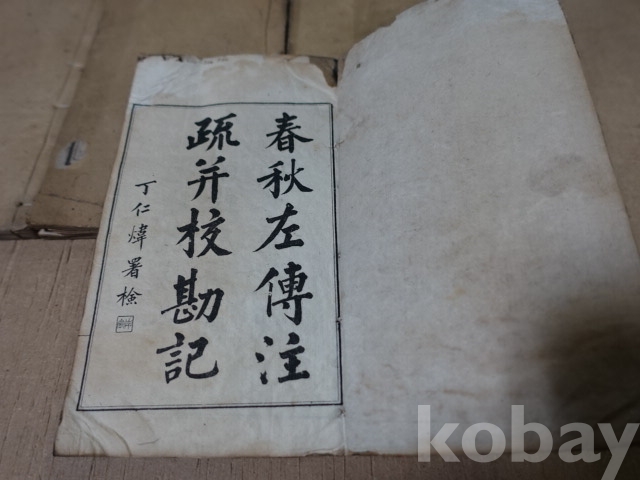 春秋左傳注
疏并校勘記
丁仁煒署檢
kobay